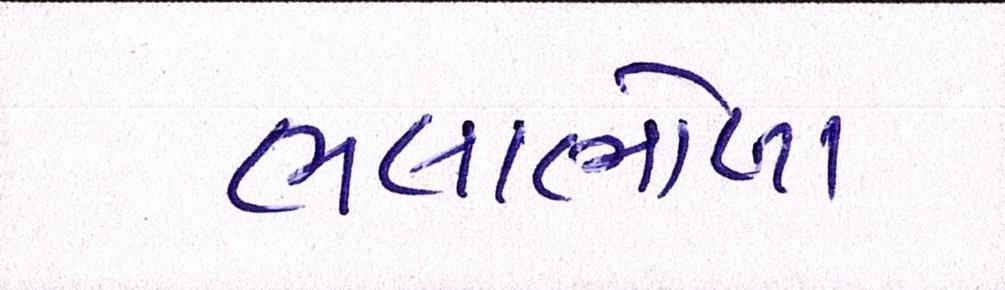 ભલાભોળા